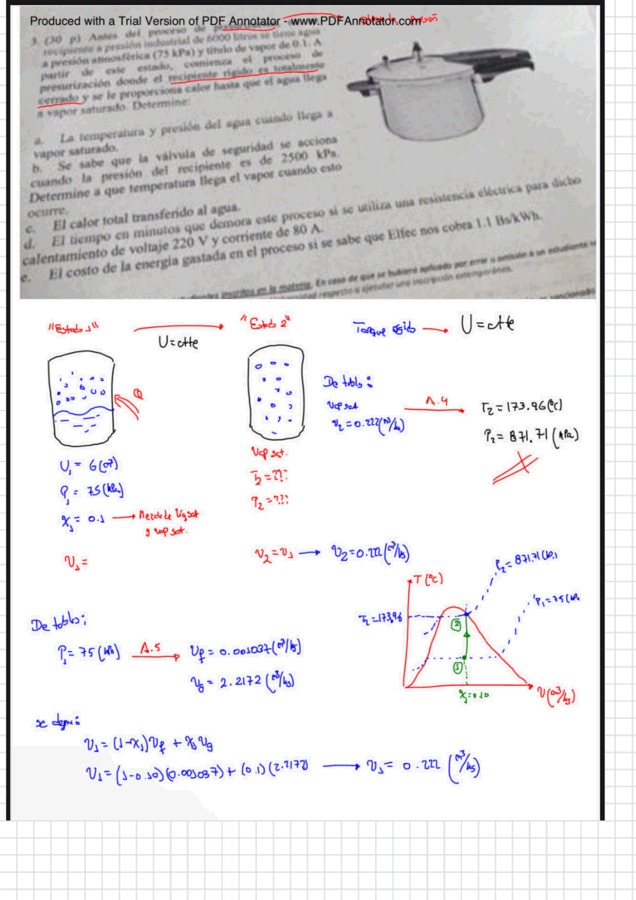 Produced with a Trial Version of PDF Annotator - www.PDFAnnotator.com
3. (30 p) Antes del proceso de
recipiente a presión industrial de 6000 litros se tiene agua
a presión atmosférica (75 kPa) y título de vapor de 0.1. A
partir de este estado, comienza el proceso de
presurización donde el recipiente rígido es totalmente
cerrado y se le proporciona calor hasta que el agua llega
a vapor saturado. Determine:
a. La temperatura y presión del agua cuando llega a
vapor saturado.
b. Se sabe que la válvula de seguridad se acciona
cuando la presión del recipiente es de 2500 kPa.
Determine a que temperatura llega el vapor cuando esto
ocurre.
c. El calor total transferido al agua.
d. El tiempo en minutos que demora este proceso si se utiliza una resistencia eléctrica para dicho
calentamiento de voltaje 220 V y corriente de 80 A.
e. El costo de la energía gastada en el proceso si se sabe que Elfec nos cobra 1.1 Bs/kWh.
inscritos en la materia. En caso de que se hubiera aplicado por error u omisión a un estudiante
respecto a ejecutar una inscripción extemporánea.
"Estado 1"
U=cte
"Estado 2"
Tanque rígido → U=cte
De tabla:
Vap sat
v₂=0.222(m³/kg)
A.4
T₂=173.96(°C)
P₂=871,71(kPa)
Q
V₁= 6(m³)
P₁= 75(kPa)
x₁= 0.1 → Mezcla de liq sat
y vap sat.
v₁=
Vap sat.
T₂=???
P₂=???
v₂=v₁ → v₂=0.222(m³/kg)
T(°C)
P₂=871.71(kPa)
P₁=75(kPa)
T₂=173,96
2
1
x₁=0.10
v(m³/kg)
De tabla:
P₁=75(kPa) A.5 vf = 0.001037(m³/kg)
vg = 2.2172(m³/kg)
v₁=(1-x₁)vf + x₁vg
v₁=(1-0.10)(0.001037)+(0.1)(2.2172) → v₁= 0.222 (m³/kg)